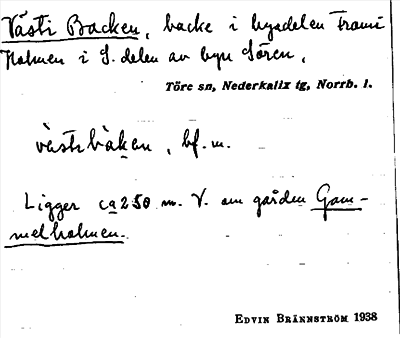 Västi Backen, backe i byadelen Frami
Holmen i S. delen av byn Sören,
Töre sn, Nederkalix tg, Norrb. l.
västibàkan, bf. m.
Ligger ca 250 m. V. om gården Gam-
melholmen.
EDVIN BRÄNNSTRÖM 1938